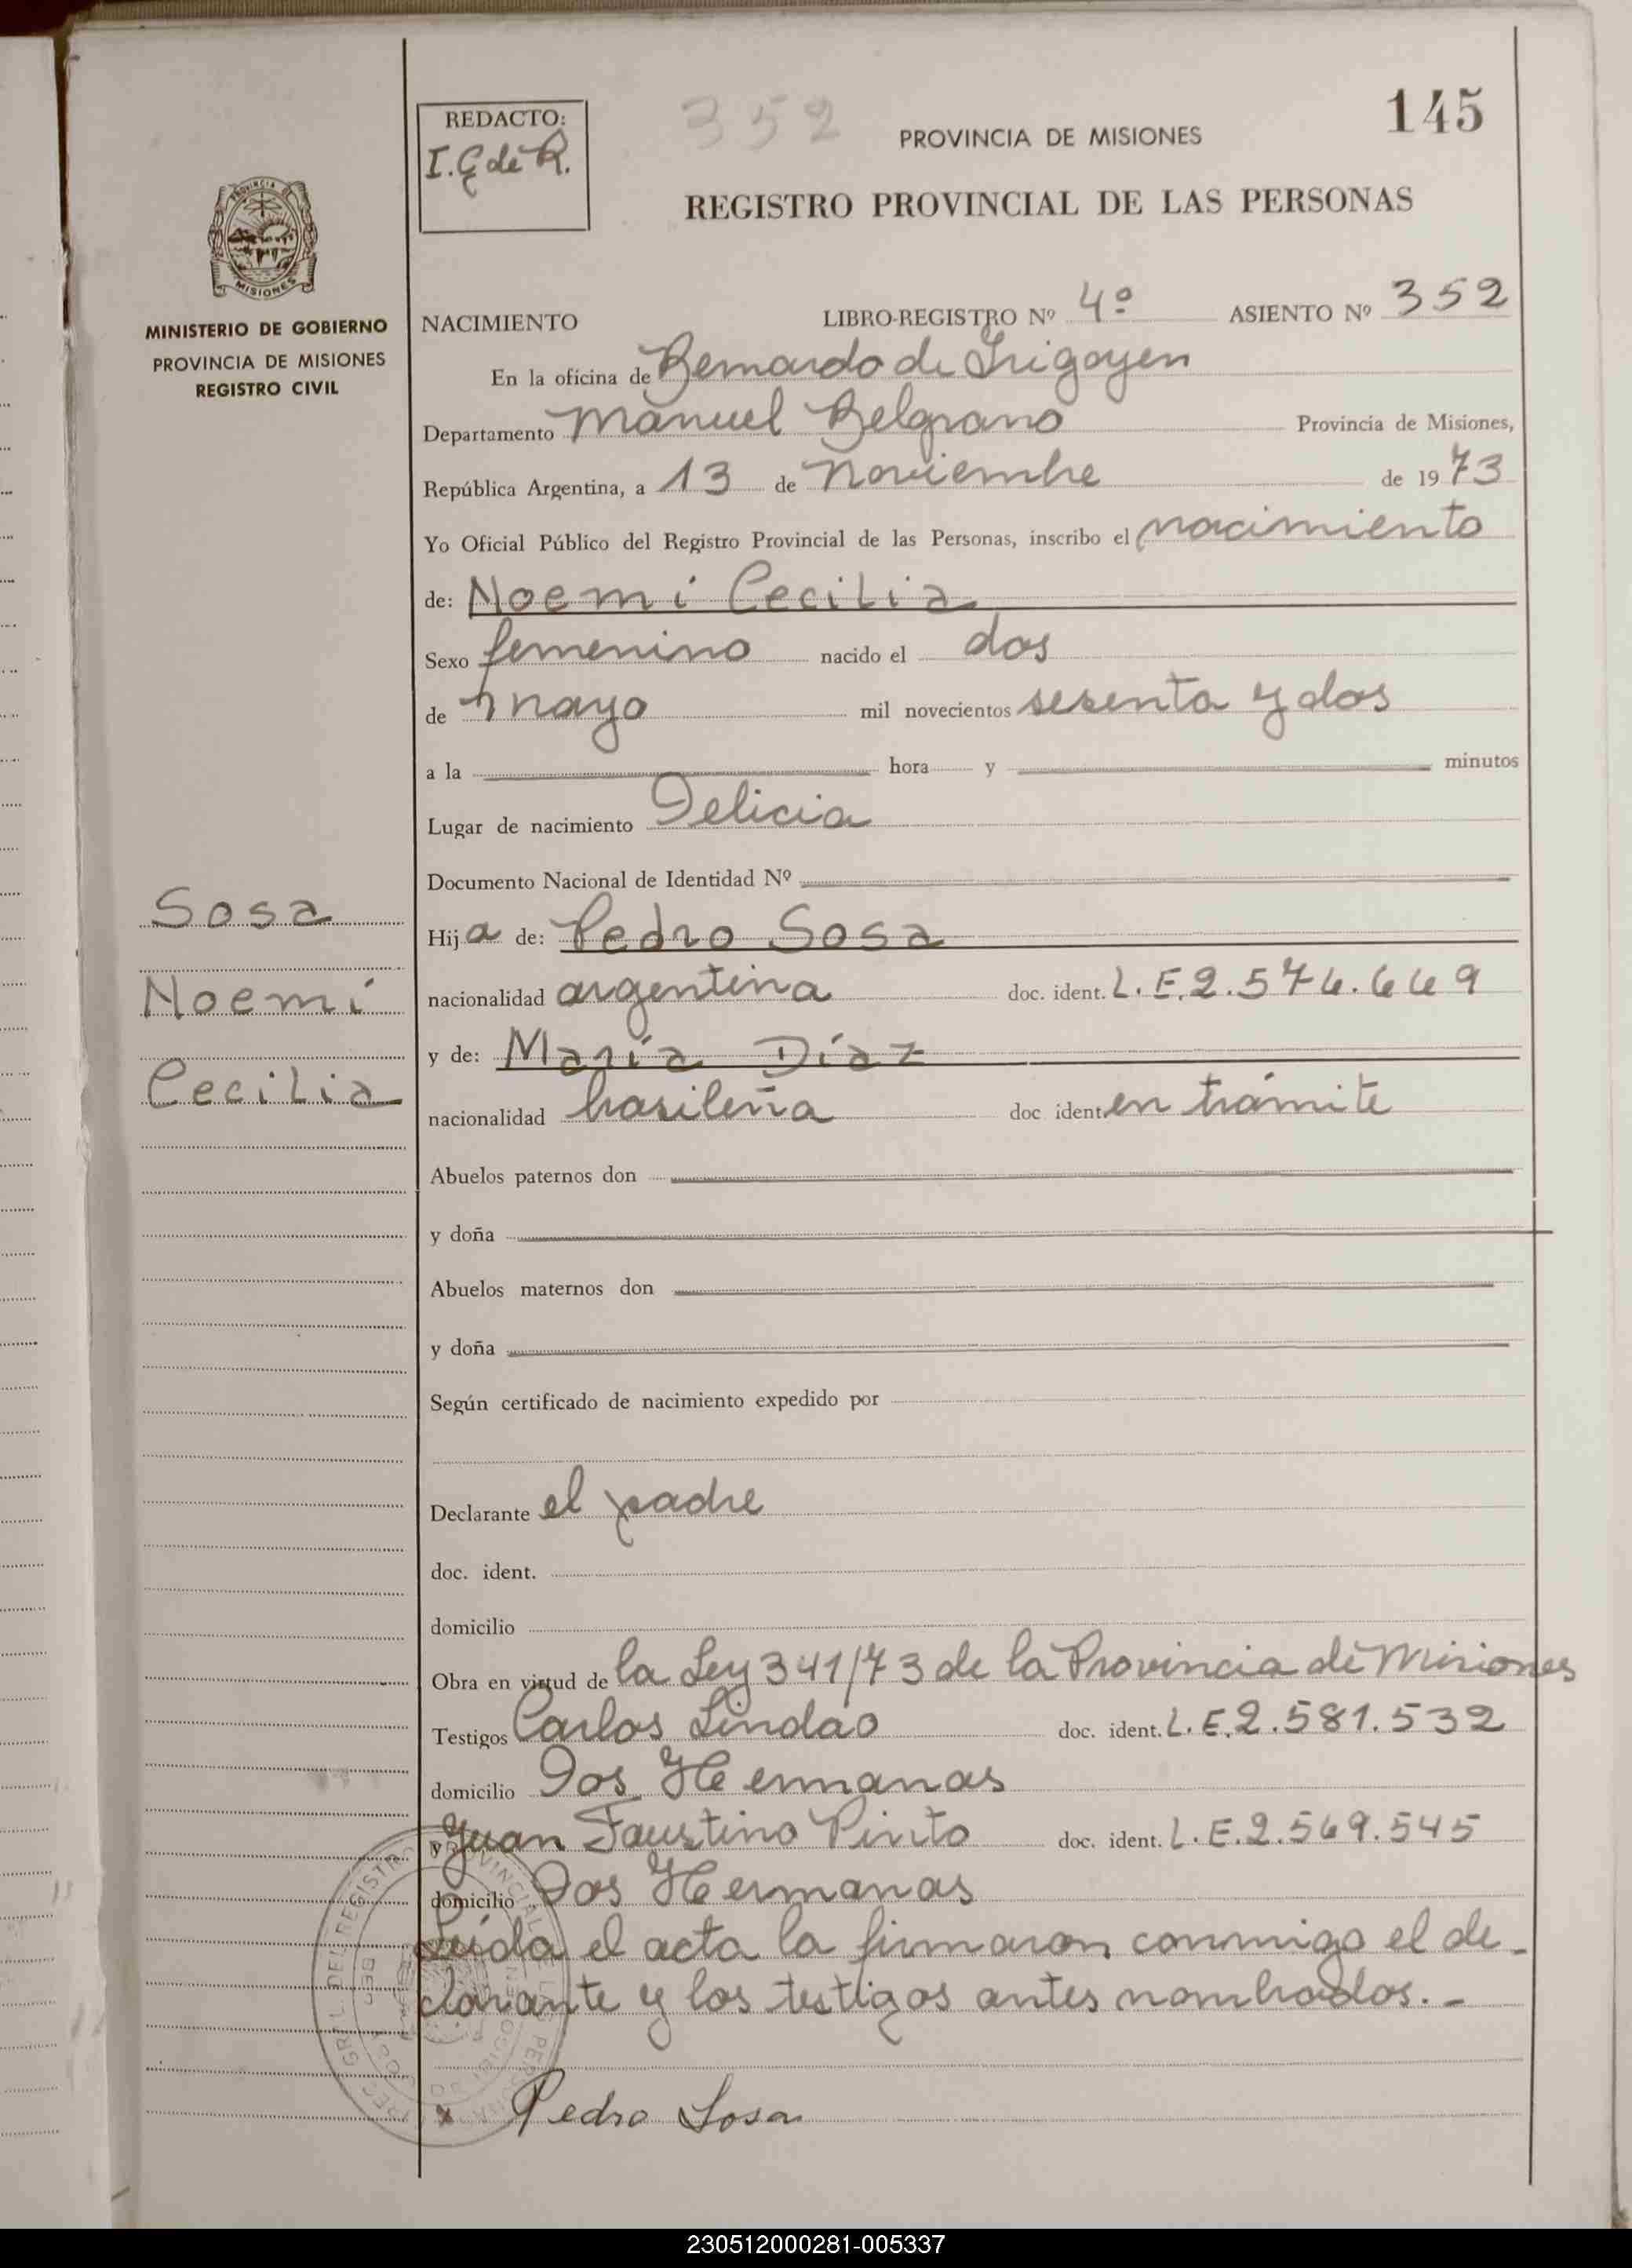 REDACTO:
I. G de R.
352
PROVINCIA DE MISIONES
145
REGISTRO PROVINCIAL DE LAS PERSONAS
MISIONES
MINISTERIO DE GOBIERNO
PROVINCIA DE MISIONES
REGISTRO CIVIL
NACIMIENTO LIBRO-REGISTRO Nº 4º ASIENTO Nº 352
En la oficina de Bernardo de Irigoyen
Departamento Manuel Belgrano Provincia de Misiones,
República Argentina, a 13 de Noviembre de 1973
Yo Oficial Público del Registro Provincial de las Personas, inscribo el nacimiento
de: Noemí Cecilia
Sexo femenino nacido el dos
de mayo mil novecientos sesenta y dos
a la hora y minutos
Lugar de nacimiento Delicia
Documento Nacional de Identidad Nº
Sosa
Noemí
Cecilia
Hija de: Pedro Sosa
nacionalidad argentina doc. ident. L.E.2.574.669
y de: María Díaz
nacionalidad brasileña doc ident. en trámite
Abuelos paternos don
y doña
Abuelos maternos don
y doña
Según certificado de nacimiento expedido por
Declarante el padre
doc. ident.
domicilio
Obra en virtud de la Ley 341/73 de la Provincia de Misiones
Testigos Carlos Lindao doc. ident. L.E.2.581.532
domicilio Dos Hermanas
y Juan Faustino Pinto doc. ident. L.E.2.569.545
domicilio Dos Hermanas
Leída el acta la firmaron conmigo el de-
clarante y los testigos antes nombrados.-
x Pedro Sosa
230512000281-005337